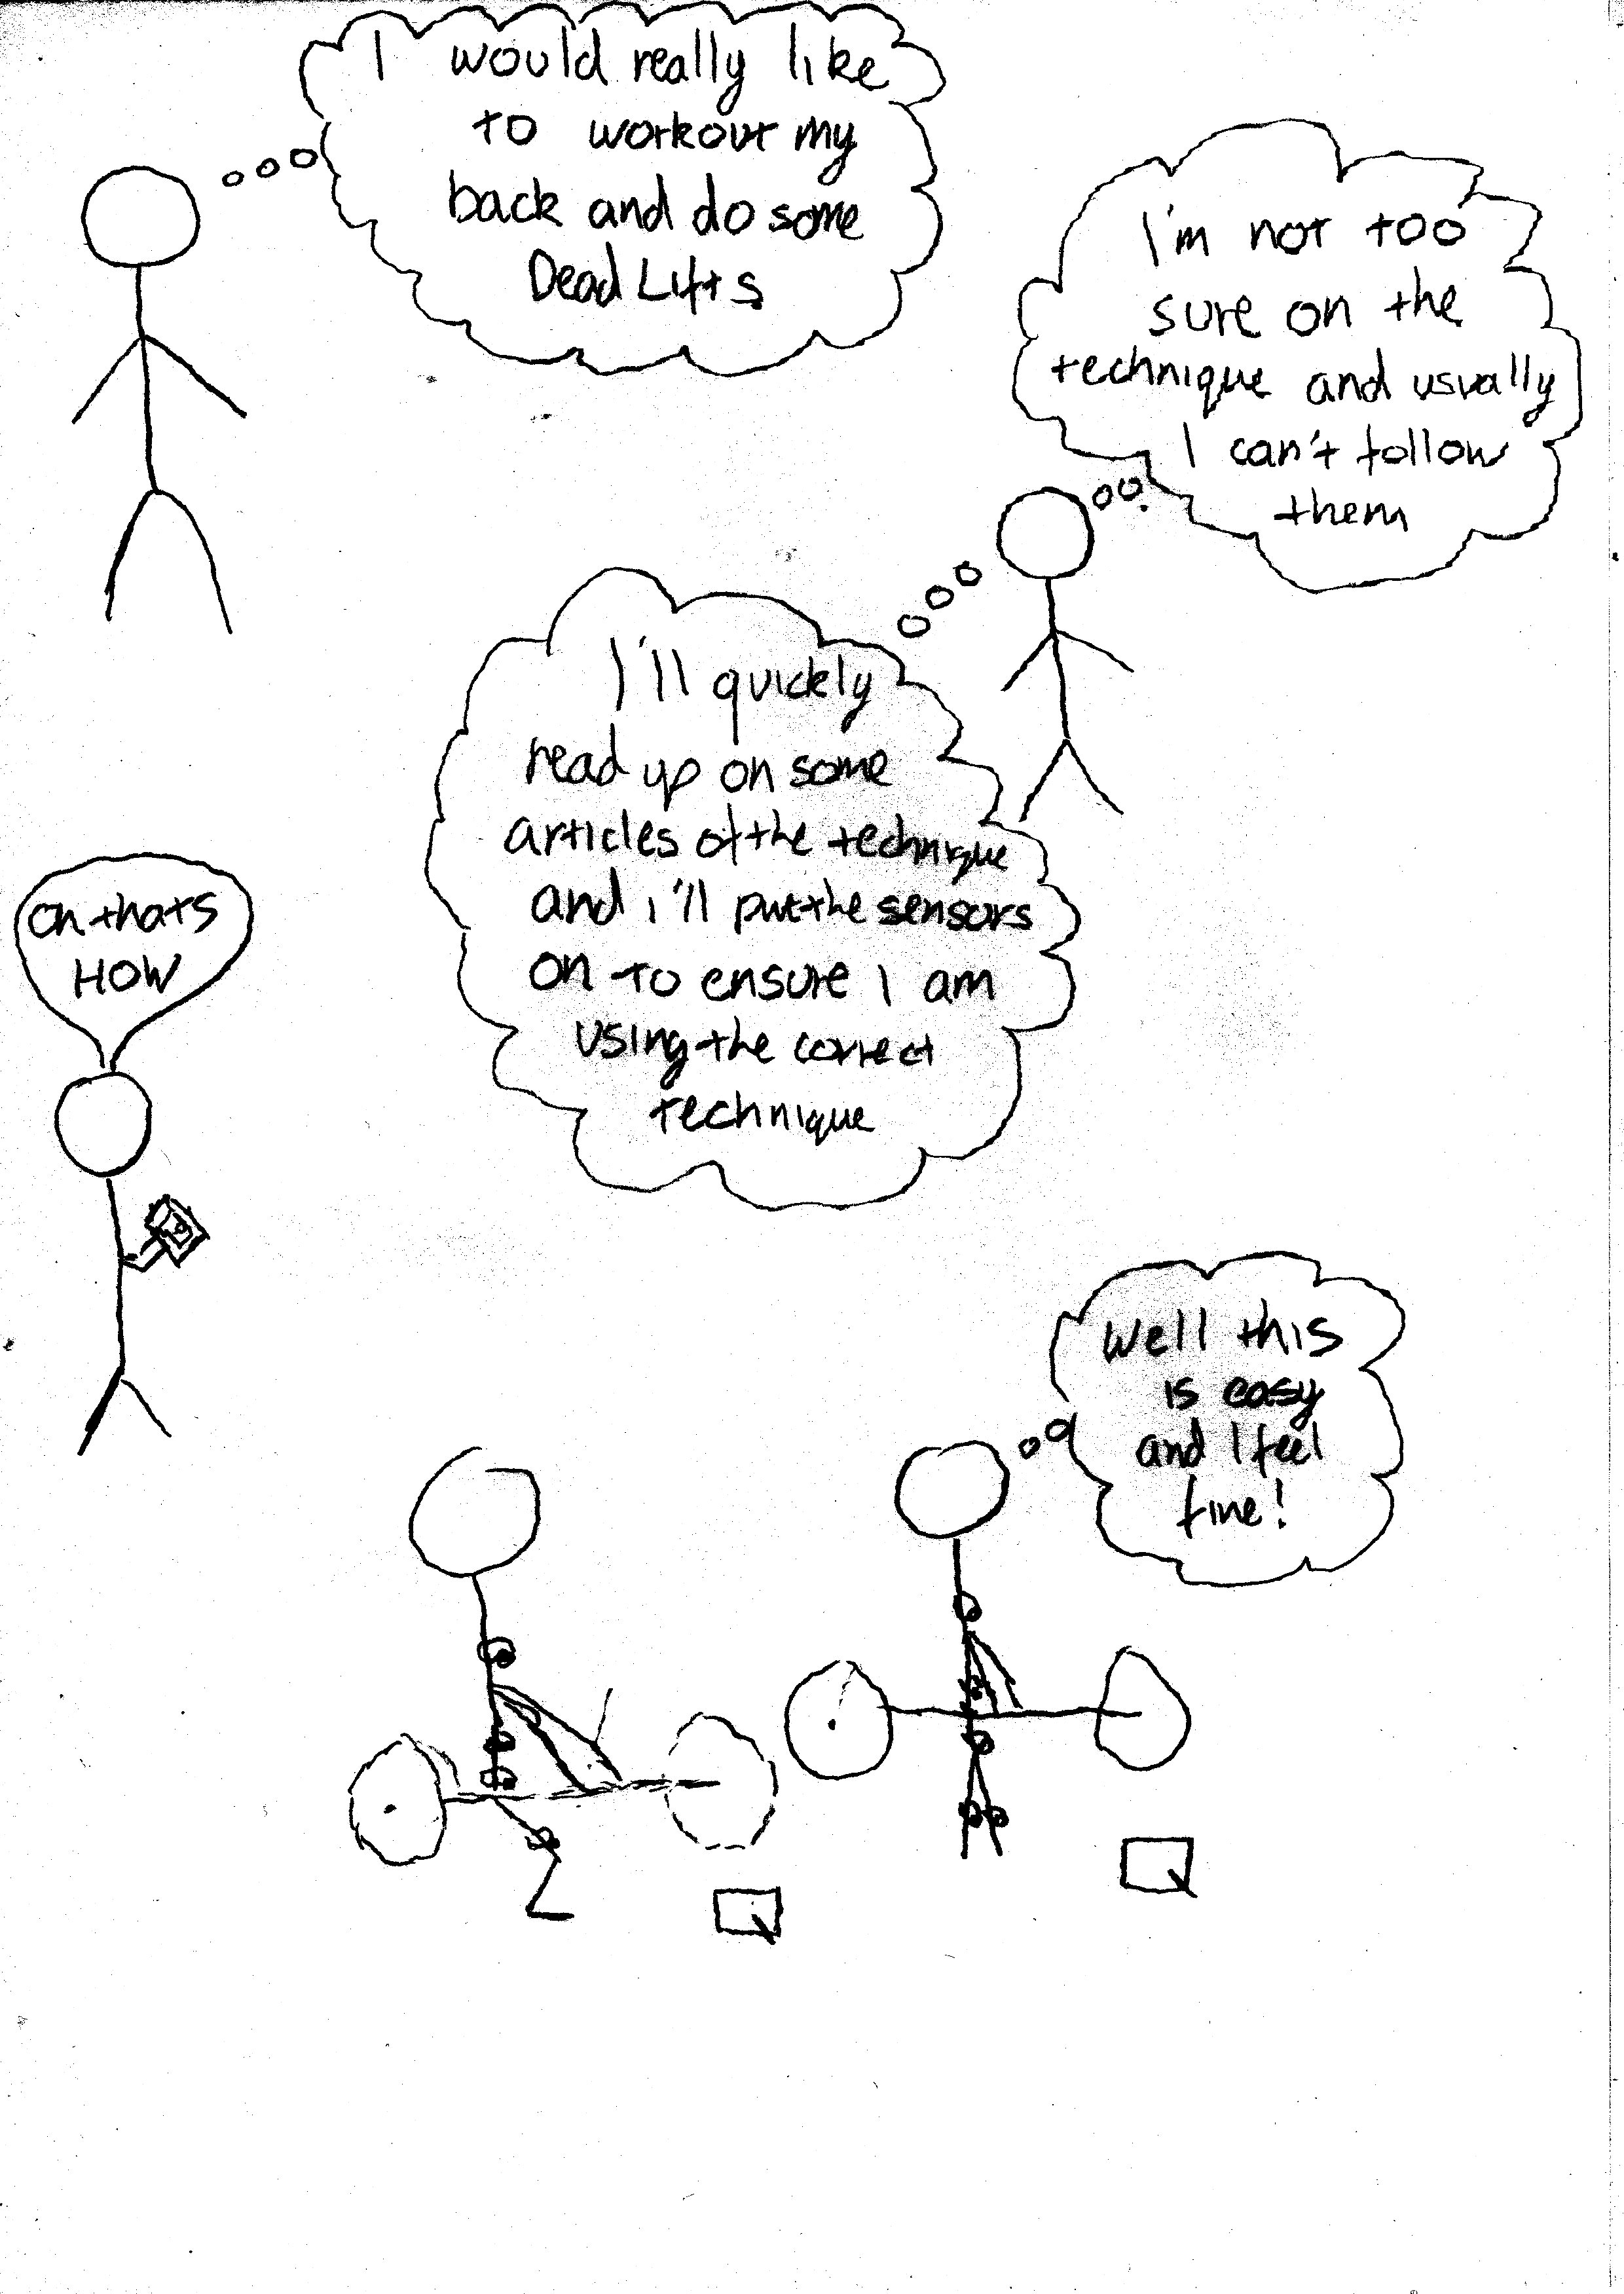 I would really like
to workout my
back and do some
Dead Lifts
I'm not too
sure on the
technique and usually
I can't follow
them
I'll quickly
read up on some
articles of the technique
and i'll put the sensors
on to ensure I am
using the correct
technique
oh thats
HOW
well this
is easy
and I feel
fine!